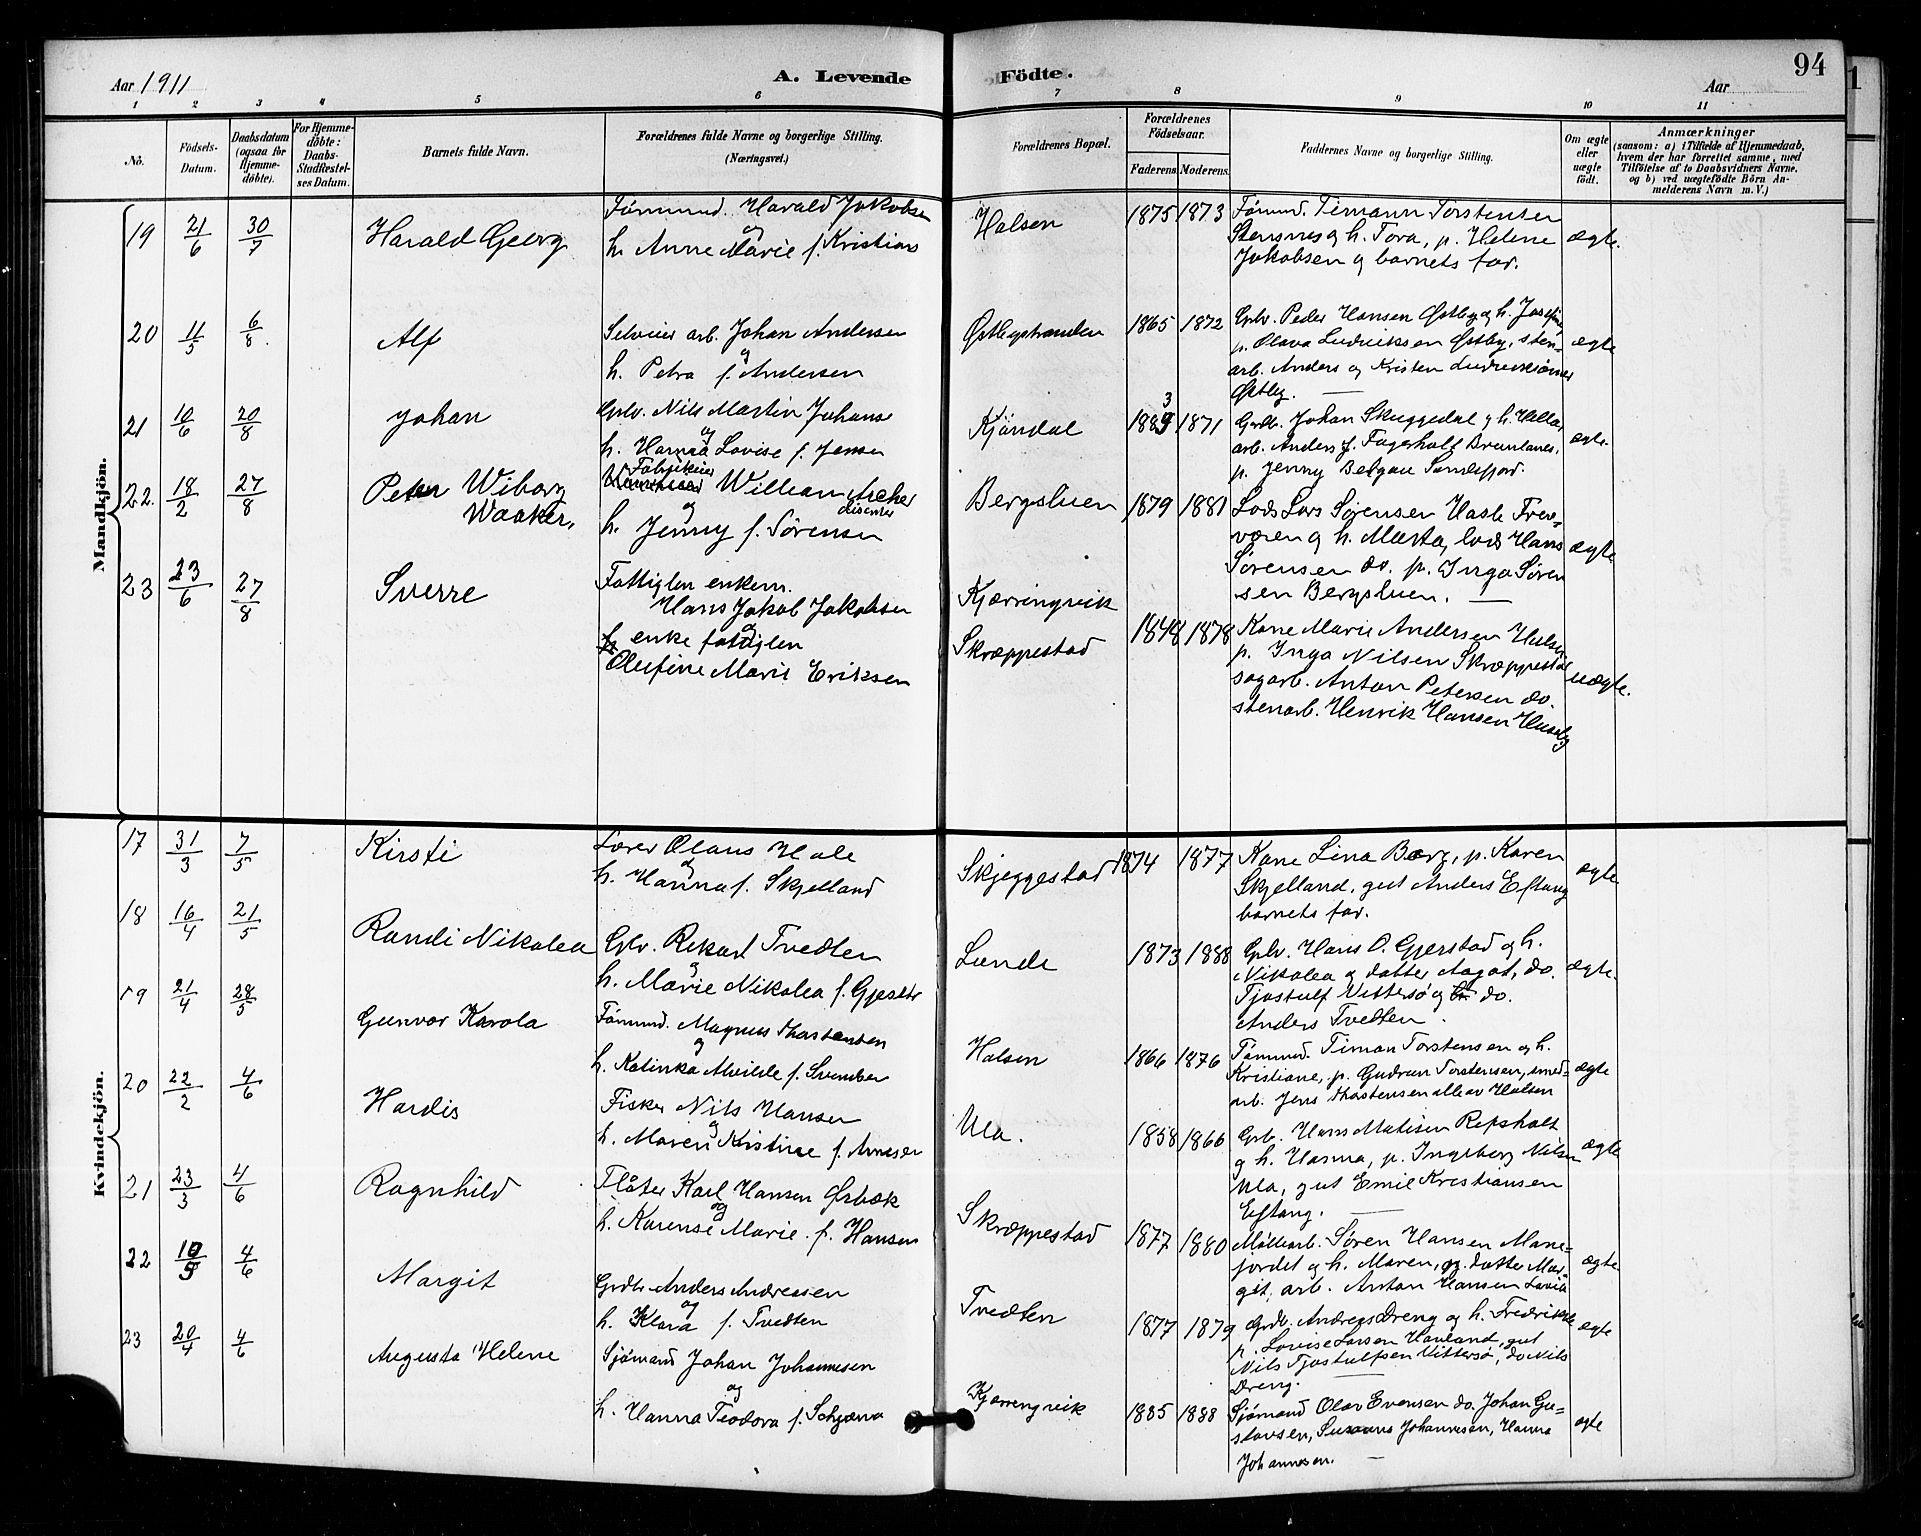 Aar 1911
A. Levende
Födte.
Aar
94
1 2 3 4 5 6 7 8 9 10 11
No.
Födsels-Datum.
Daabsdatum (ogsaa för Hjemme-döbte).
For Hjemme-döbte: Daabs-Stadfæstel-ses Datum.
Barnets fulde Navn.
Forældrenes fulde Navne og borgerlige Stilling. (Næringsvei.)
Forældrenes Bopæl.
Forældrenes Födselsaar.
Faderens. Moderens.
Faddernes Navne og borgerlige Stilling.
Om ægte eller uægte födt.
Anmærkninger
(saasom: a) i Tilfælde af Hjemmedaab,
hvem der har forrettet samme, med
Tilföielse af to Daabsvidners Navne,
og b) ved uægtefödte Börn An-
melderens Navn m. V.)
Mandkjön.
19 21/6 30/7 Harald Georg
Harald Jakobsen
og
h. Anne Marie f. Kristians
Halsen
1875 1873
Timann Torstensen
Stensnes og h. Tora, p. Helene
Jakobsen og barnets far.
ægte.
20 11/5 6/8 Alf
arb. Johan Andersen
og
h. Petra f. Andersen
Østbystranden
1865 1872
Peder Hansen Østby og h. Josefine
p. Olava Ludviksen Østby, sten-
arb. Anders og Kristen Ludviksønner
Østby.
ægte
21 10/6 20/8 Johan
Nils Martin Johans
og
h. Hanna Lovise f. Jensen
Kjöndal
3
1889 1871
Grdb. Johan Skuggedal og h. Hella,
arb. Anders J. Fagerholt Brunlanes,
p. Jenny Bergan Sandefjord.
ægte.
22. 18/2 27/8 Peter Wiborg
Waaker,
Fabrikeier
William Archer
og
h. Jenny f. Sørensen
Bergsluen
1879 1881
Lods Lars Sørensen Hasle Fred-
væren og h. Marta, lods Hans
Sørensen do. p. Inga Søren
sen Bergsluen.
ægte
23 23/6 27/8 Sverre
Fattiglem enkem.
Hans Jakob Jakobsen
og
enke fattiglem
Olufine Marie Eriksen
Kjærringvik
Skræppestad
1848 1878
Kone Marie Andersen
p. Inga Nilsen Skræppestad
sagarb. Anton Petersen do.
stenarb. Henrik Hansen Huseby
uægte.
Kvindekjön.
17 31/3 7/5 Kirsti
Lærer Olaus Hale
og
h. Hanna f. Skjelland
Skjeggestad
1874 1877
Kone Lina Berg, p. Karen
Skjelland, gut Anders Eftang
barnets far.
ægte
18 16/4 21/5 Randi Nikolea
Rikard Tvedten
og
h. Marie Nikolea f. Gjerstad
Lunde
1873 1888
Hans O. Gjerstad og h.
Nikolea og datter Aagot, do.
Tjostulf Vittersø og do.
Anders Tvedten.
ægte.
19 21/4 28/5 Gunvor Karola
Magnus Thorstensen
og
h. Kalinka Alvilde f. Svendsen
Halsen
1866 1876
Timan Torstensen og h.
Kristiane, p. Gudrun Torstensen, smed-
arb. Jens Thorstensen alle av Halsen
ægte
20 22/2 4/6 Hardis
Fisker Nils Hansen
og
h. Maren Kristine f. Arnesen
Ula.
1858 1866
Hans Matisen Refsholt
og h. Hanna, p. Ingeborg Nilsen
Ula, gut Emil Kristiansen
Eftang.
ægte
21 23/3 4/6 Ragnhild
Karl Hansen Ørbæk
og
h. Karense Marie f. Hansen
Skræppestad
1877 1880
Møllearb. Søren Hansen Mane-
jordet og h. Maren, og datter Mar-
git, arb. Anton Hansen
ægte
22 10/5 4/6 Margit
Grdb. Anders Andresen
og
h. Klara f. Tvedten
Tvedten
1877 1879
Grdb. Andreas Dreng og h. Fredrikke
p. Lovise Larsen Havland, gut
Nils Tjostulfsen Vittersø, do Nils
Dreng.
ægte
23 20/4 4/6 Augusta Helene
Sjømand Johan Johannesen
og
h. Hanna Teodora f. Schjærva
Kjærringvik
1885 1888
Sjømand Olav Evensen do. Johan Gu-
stavsen, Susanne Johannesen, Hanna
Johannesen.
ægte